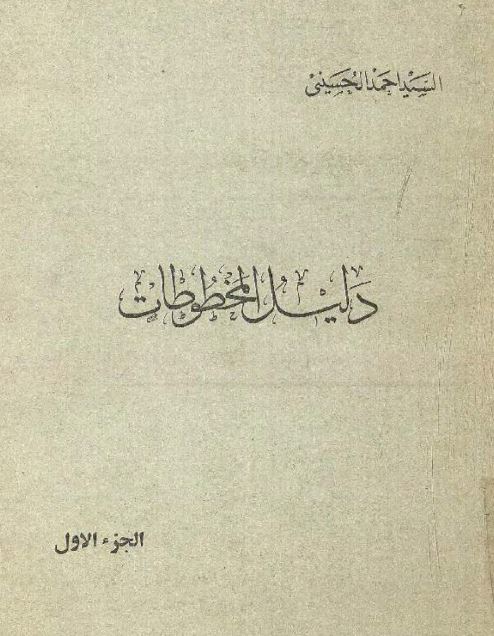 السيد احمد الحسيني
دليل المخطوطات
الجزء الاول